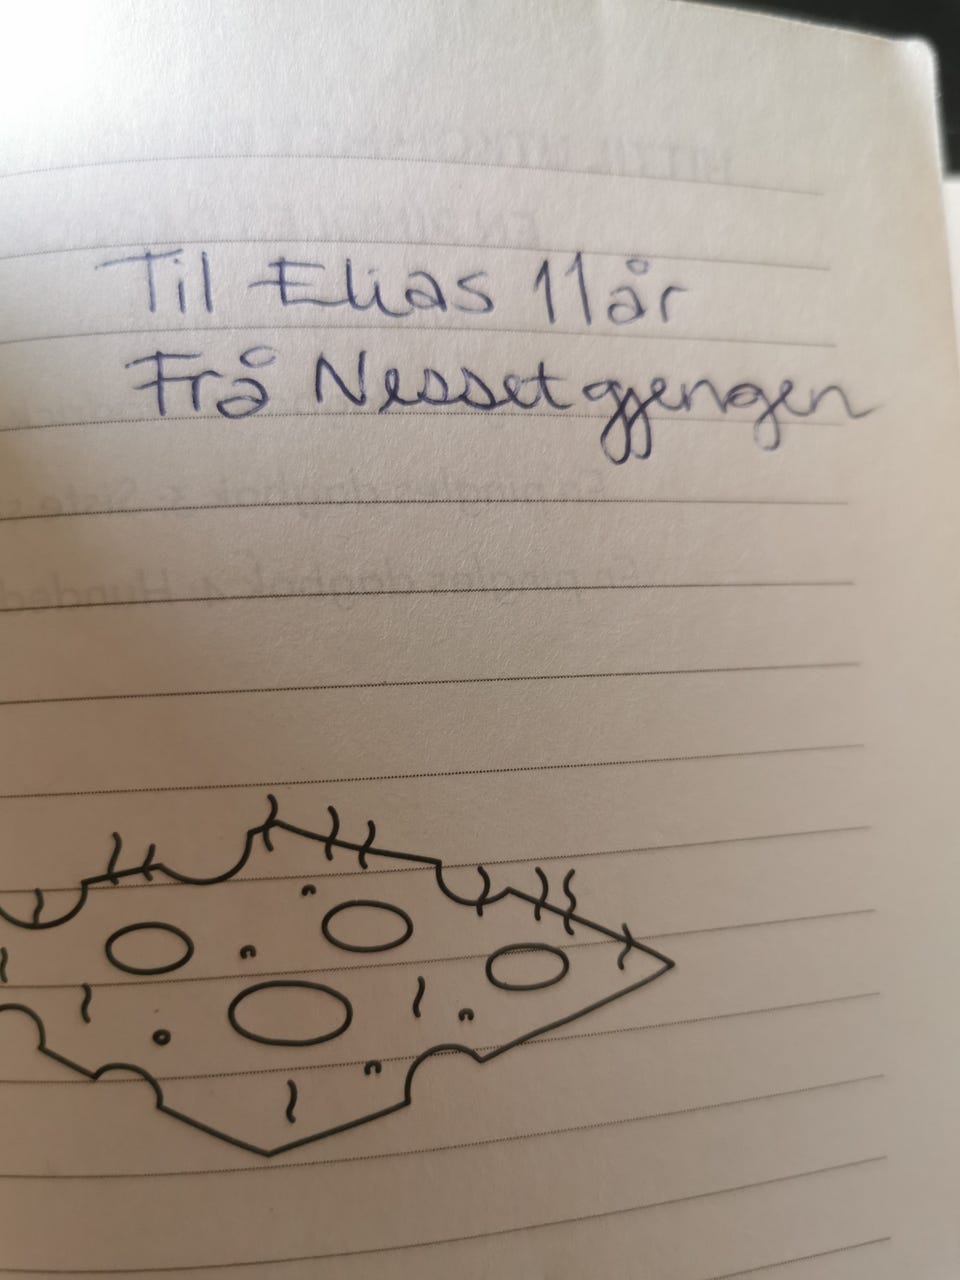 Til Elias 11år
Frå Nessetgjengen